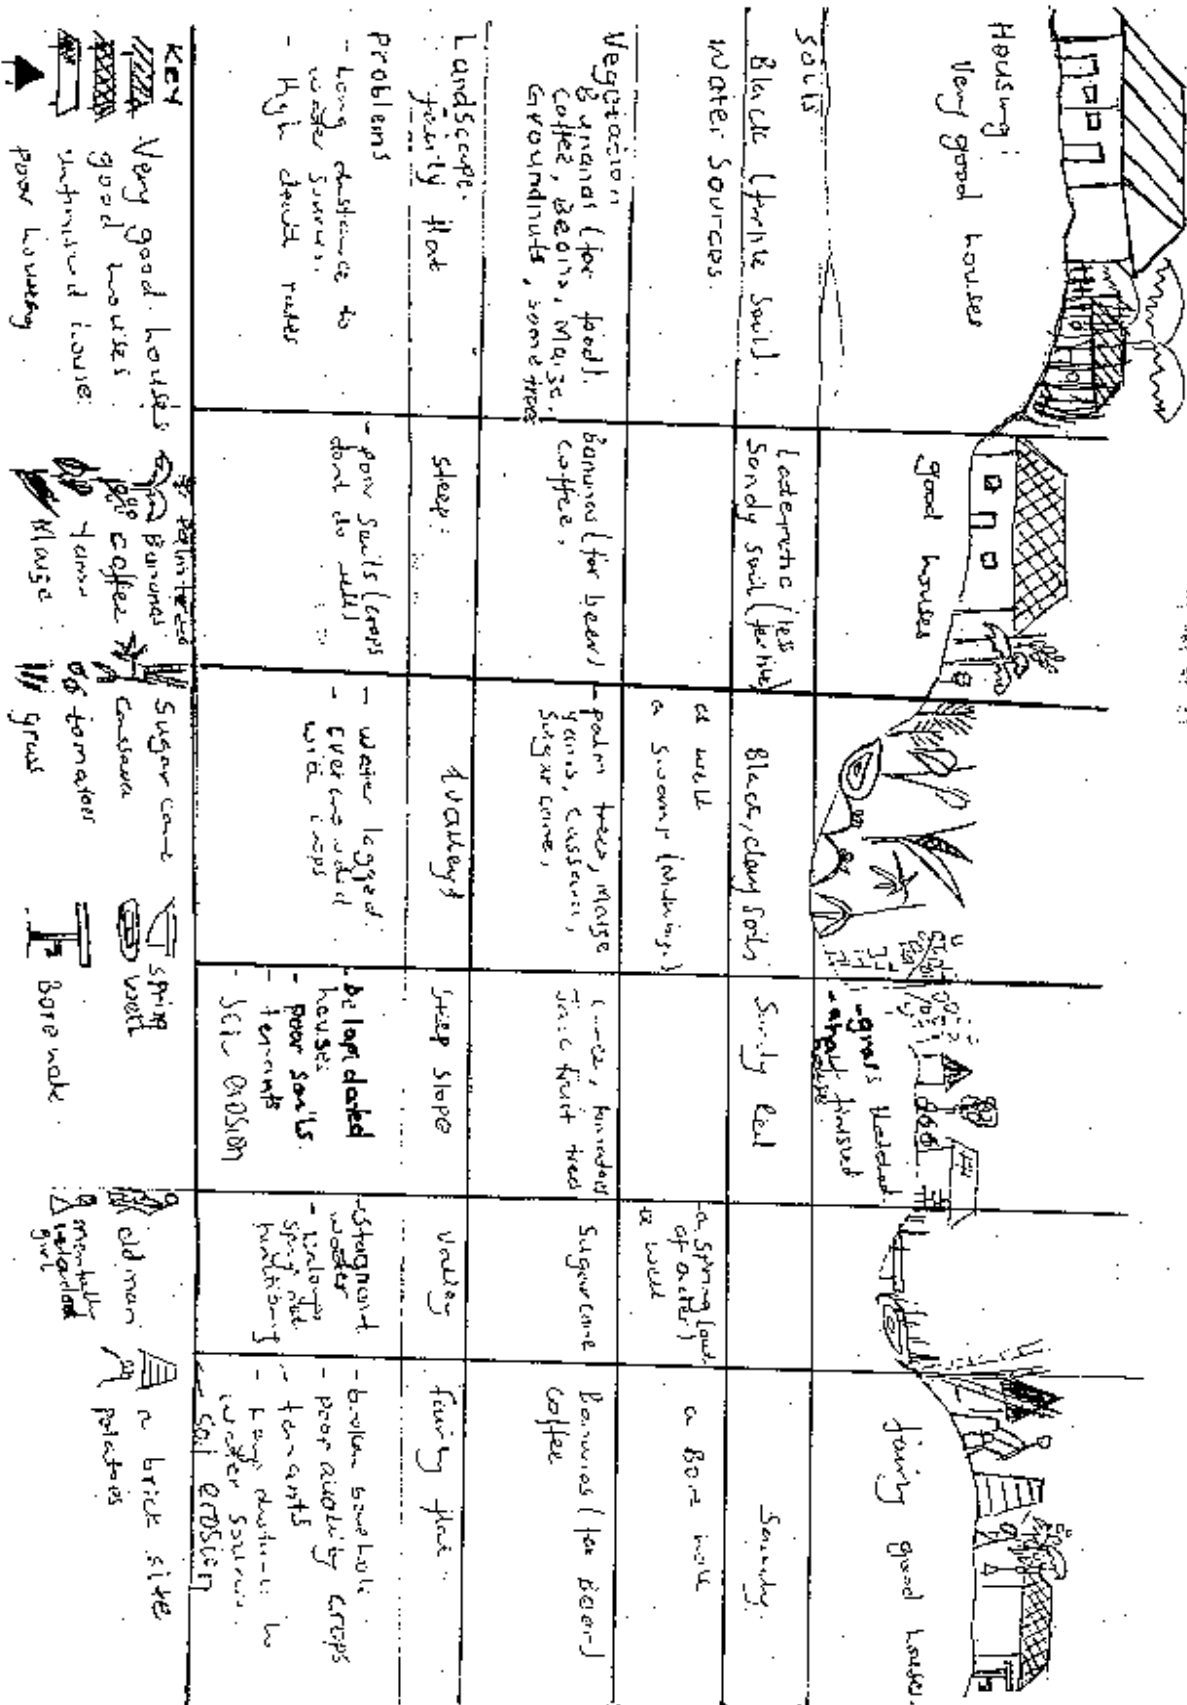 Housing:
Very good houses
good houses
- grass thatched
- half finished
house
fairly good houses.
Soils
Black (fertile soil).
Lateretic (less
Sandy soil (fertile)
Black, clay soils
Sandy
Sandy.
Water Sources.
a well
a swamp
- a spring (out
of order)
a well
a Bore hole
Vegetation
Bananas (for food).
Coffee, Beans, Maize,
Groundnuts, some trees
Bananas (for beer)
coffee,
- palm trees, Maize
yams, cassava,
Sugar cane,
tomatoes
Jack fruit trees
Sugarcane
Bananas (for Beer)
Coffee
Landscape.
fairly flat
Steep:
Valleys
Steep slope
Valley
fairly flat.
Problems
- Long distance to
water sources.
- High death rates
- poor soils (crops
dont do well)
- water logged
with crops
- delapidated
houses
- poor soils.
- tenants
- Soil erosion
- Stagnant
water
- broken bore hole
- poor quality crops
- tenants
- Long distance to
water sources.
- Soil erosion
KEY
Very good houses
good houses
unfinished house
poor housing
palm trees
Bananas
coffee
Yams
Maize
Sugar cane
Cassava
tomatoes
grass
Spring
well
Bore hole
old man
mentally
retarded
girl
a brick site
potatoes